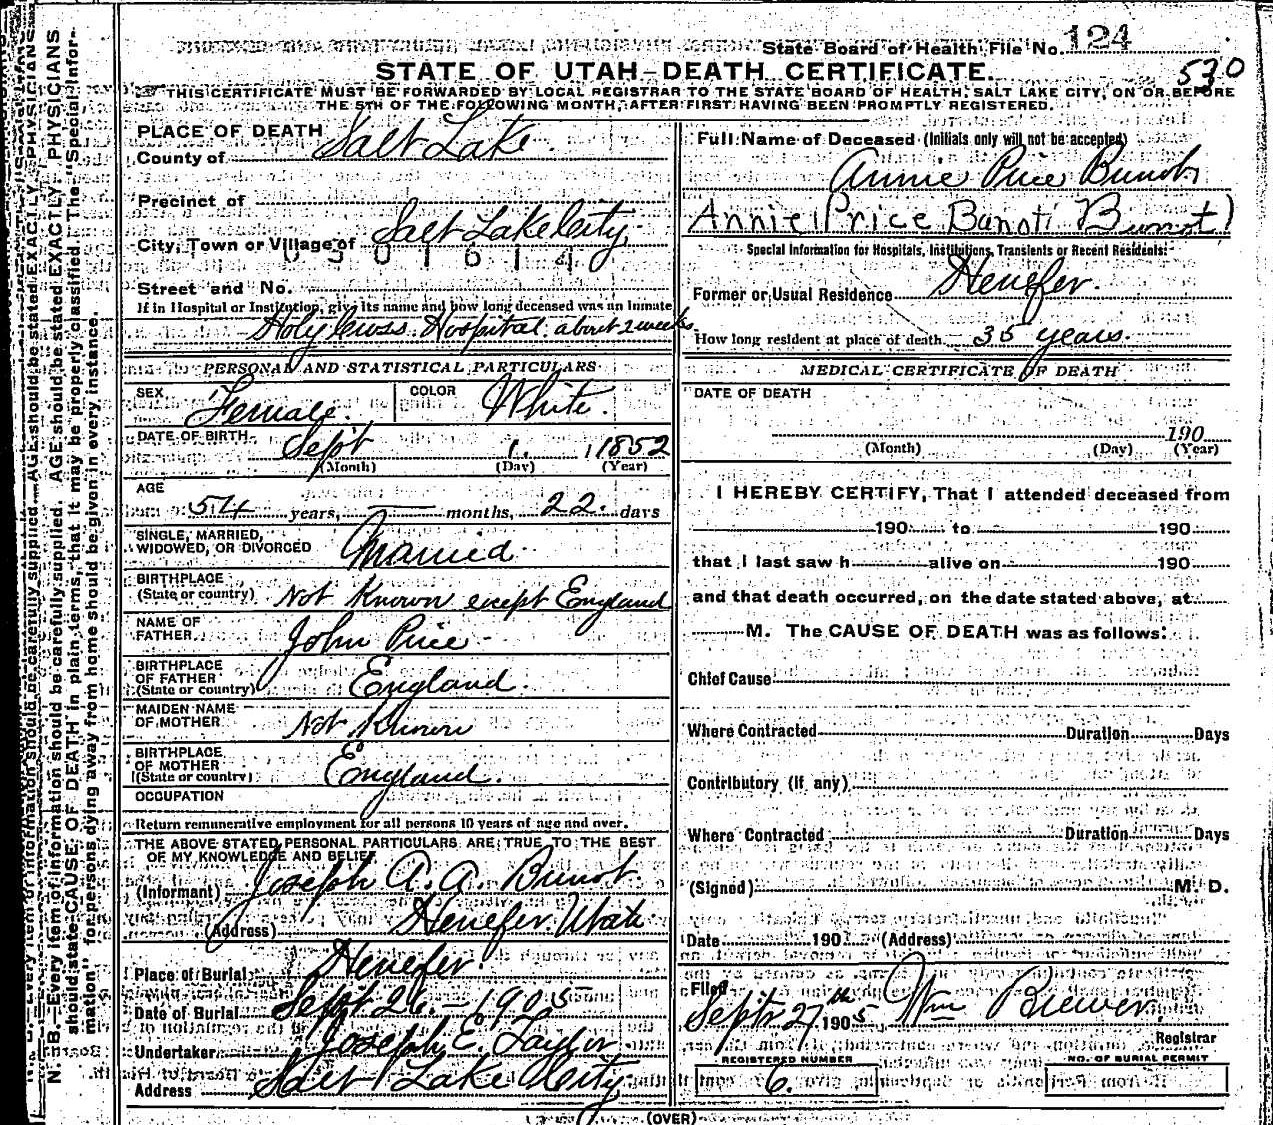 State Board of Health File No. 124
530
STATE OF UTAH—DEATH CERTIFICATE.
THIS CERTIFICATE MUST BE FORWARDED BY LOCAL REGISTRAR TO THE STATE BOARD OF HEALTH, SALT LAKE CITY, ON OR BEFORE
THE 5TH OF THE FOLLOWING MONTH, AFTER FIRST HAVING BEEN PROMPTLY REGISTERED.
N. B.—Every item of information should be carefully supplied. AGE should be stated EXACTLY. PHYSICIANS
should state CAUSE OF DEATH in plain terms, that it may be properly classified. The "Special Infor-
mation" for persons dying away from home should be given in every instance.
PLACE OF DEATH
County of Salt Lake
Precinct of
City, Town or Village of Salt Lake City
0501614
Street and No.
If in Hospital or Institution, give its name and how long deceased was an inmate
Holy Cross Hospital about 2 weeks
PERSONAL AND STATISTICAL PARTICULARS
SEX Female. COLOR White.
DATE OF BIRTH Sept 1. 1852
(Month) (Day) (Year)
AGE
54 years, — months, 22. days
SINGLE, MARRIED,
WIDOWED, OR DIVORCED Married
BIRTHPLACE
(State or country) Not Known ecept England
NAME OF
FATHER John Price
BIRTHPLACE
OF FATHER
(State or country) England.
MAIDEN NAME
OF MOTHER Not Known
BIRTHPLACE
OF MOTHER
(State or country) England.
OCCUPATION
Return remunerative employment for all persons 10 years of age and over.
THE ABOVE STATED PERSONAL PARTICULARS ARE TRUE TO THE BEST
OF MY KNOWLEDGE AND BELIEF
(Informant) Joseph A. A. Bunot
(Address) Henefer Utah
Place of Burial Henefer.
Date of Burial Sept 26.—1905
Undertaker Joseph E. Taylor
Address Salt Lake City.
Full Name of Deceased (Initials only will not be accepted)
Annie Price Bunot
Annie (Price Bunot Bunot)
Special Information for Hospitals, Institutions, Transients or Recent Residents:
Former or Usual Residence Henefer.
How long resident at place of death 35 years.
MEDICAL CERTIFICATE OF DEATH
DATE OF DEATH
190
(Month) (Day) (Year)
I HEREBY CERTIFY, That I attended deceased from
190 to 190
that I last saw h alive on 190
and that death occurred, on the date stated above, at
M. The CAUSE OF DEATH was as follows:
Chief Cause
Where Contracted Duration Days
Contributory (if any)
Where Contracted Duration Days
(Signed) M. D.
Date 190 (Address)
Filed
Septr 27th 1905, Wm Brewer
Registrar
REGISTERED NUMBER
6.
NO. OF BURIAL PERMIT
(OVER)